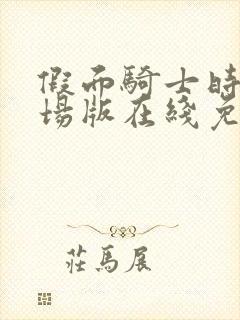 假面騎士時
場版在綫免
莊馬展